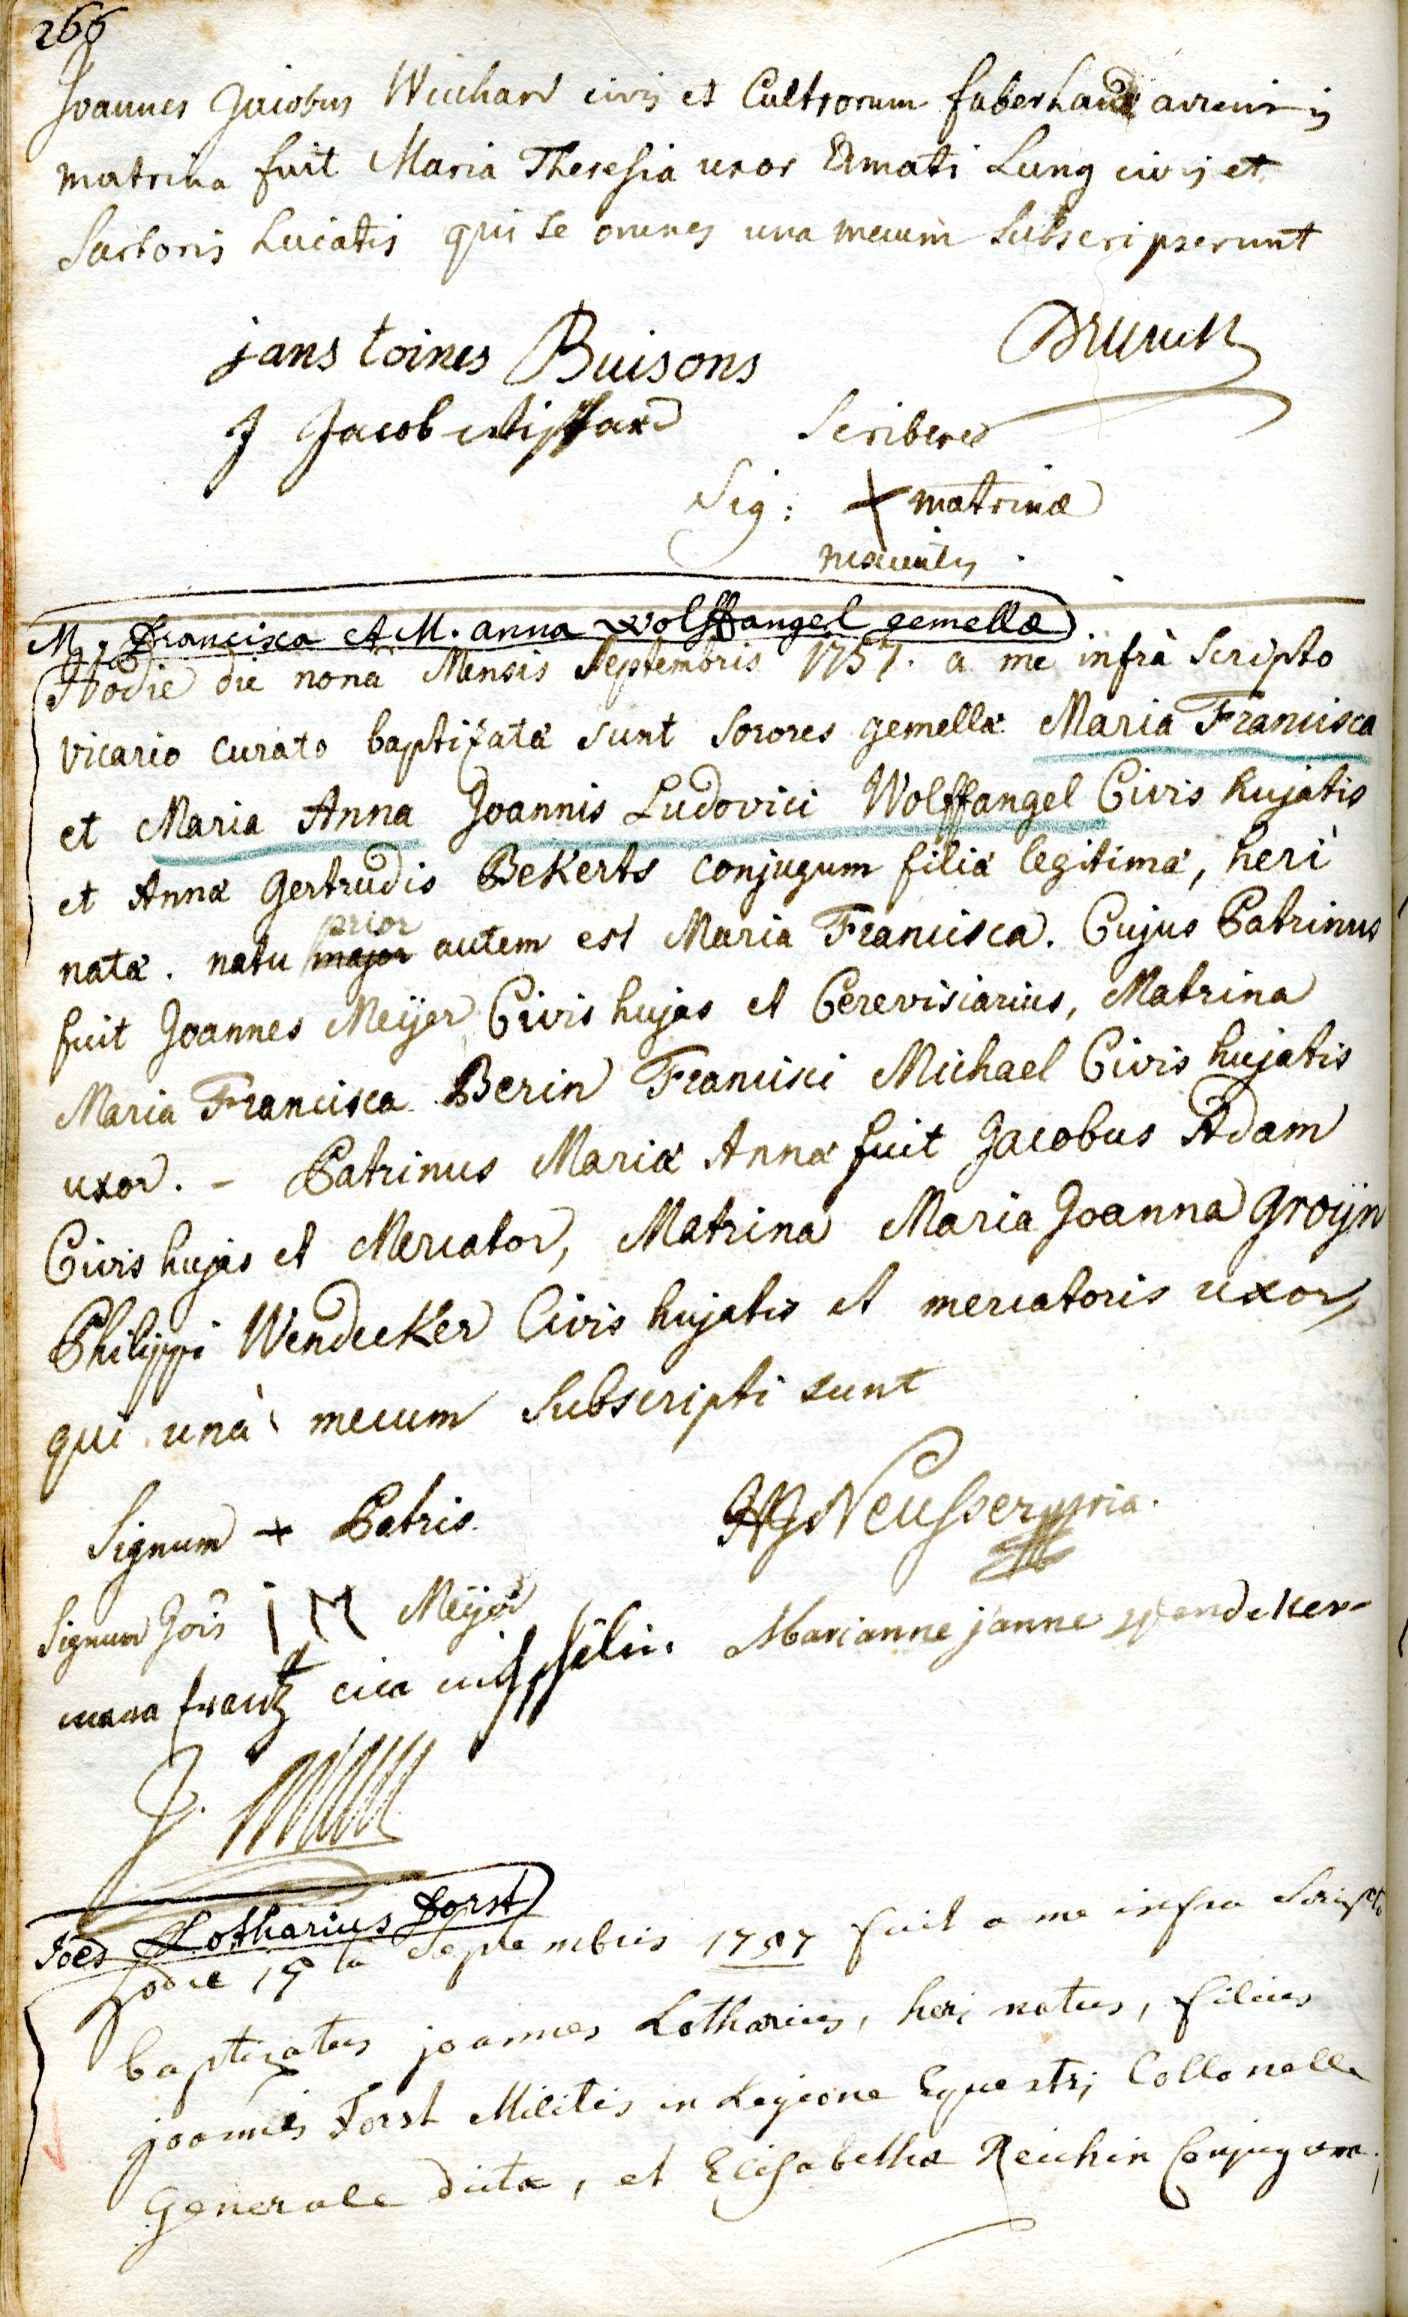 266
Joannes Jacobus Wiichard civis et Cultrorum faber
matrina fuit Maria Theresia uxor Amati Lung civis et
Sartoris Luciatis qui se omnes una mecum Subscripserunt
jans toines Buisons
J Jacob
Scribere
Sig: + matrinæ
M. Francisca et M. anna wolffangel gemellæ
Hodie die nona Mensis Septembris 1757. a me infrà Scripto
vicario curato baptizatæ sunt sorores gemellæ Maria Francisca
et Maria Anna Joannis Ludovici Wolffangel Civis hujatis
et Annæ Gertrudis Bekerts conjugum filiæ legitimæ, heri
natæ. natu major prior autem est Maria Francisca. Cujus Patrinus
fuit Joannes Meÿer Civis hujas et Cerevisiarius, Matrina
Maria Francisca Berin Francisci Michael Civis hujatis
uxor. – Patrinus Mariæ Annæ fuit Jacobus Adam
Civis hujas et Mercator, Matrina Maria Joanna Groÿn
Philippi Wendecker Civis hujatis et mercatoris uxor,
qui unà mecum Subscripti sunt
Signum + Patris
HJ Neusser mpria.
Signum Jois i M Meÿer
Marianne janne wendeker
maria frantz cica
Joes Lotharius Forst
hodie 19ta Septembris 1757 fuit a me infra Scripto
baptizatus joannes Lotharius, heri natus, filius
joannis Forst Militis in Legione Equestri Collonelle
Generale dicta, et Elisabethæ Reichin Conjugum,